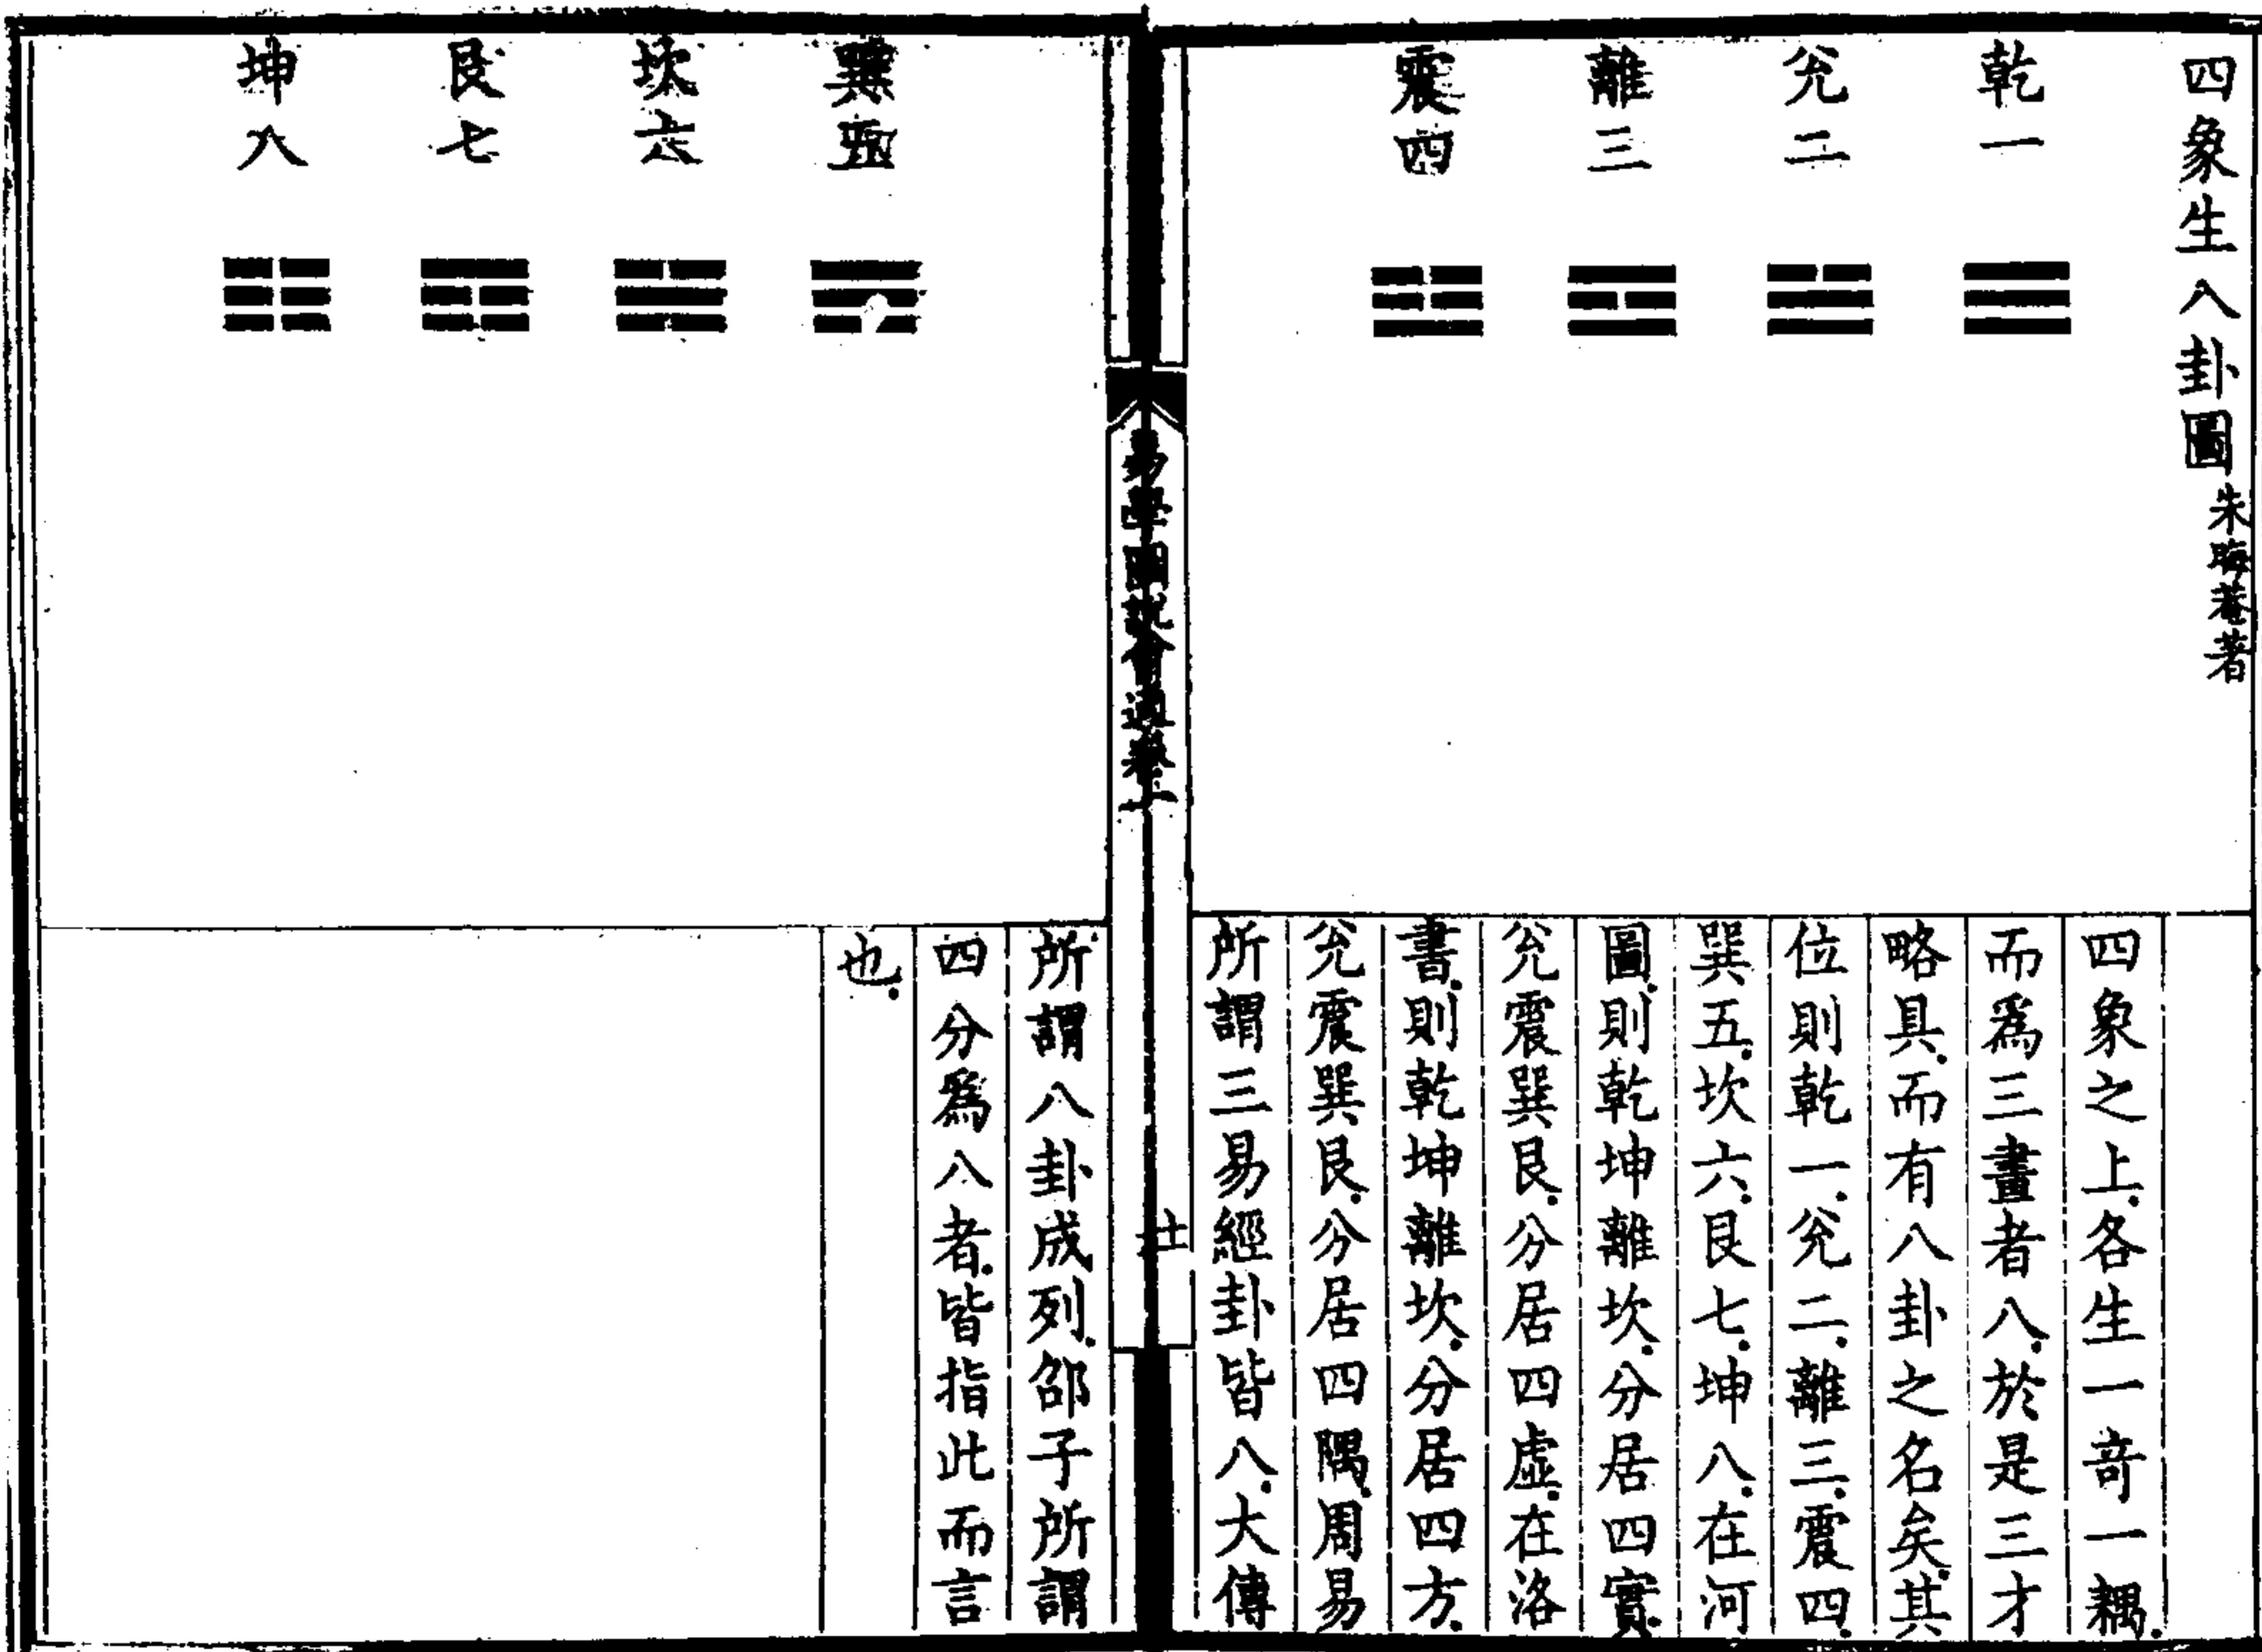 四象生八卦圖 朱晦菴著
乾一
兊二
離三
震四
四象之上.各生一奇一耦.
而爲三畫者八.於是三才
略具.而有八卦之名矣.其
位則乾一.兊二.離三.震四.
巽五.坎六.艮七.坤八.在河
圖.則乾坤離坎.分居四實.
兊震巽艮.分居四虛.在洛
書.則乾坤離坎.分居四方.
兊震巽艮.分居四隅.周易
所謂三易經卦皆八.大傳
易學圖說會通卷上
十
巽五
坎六
艮七
坤八
所謂八卦成列.邵子所謂
四分爲八者.皆指此而言
也.